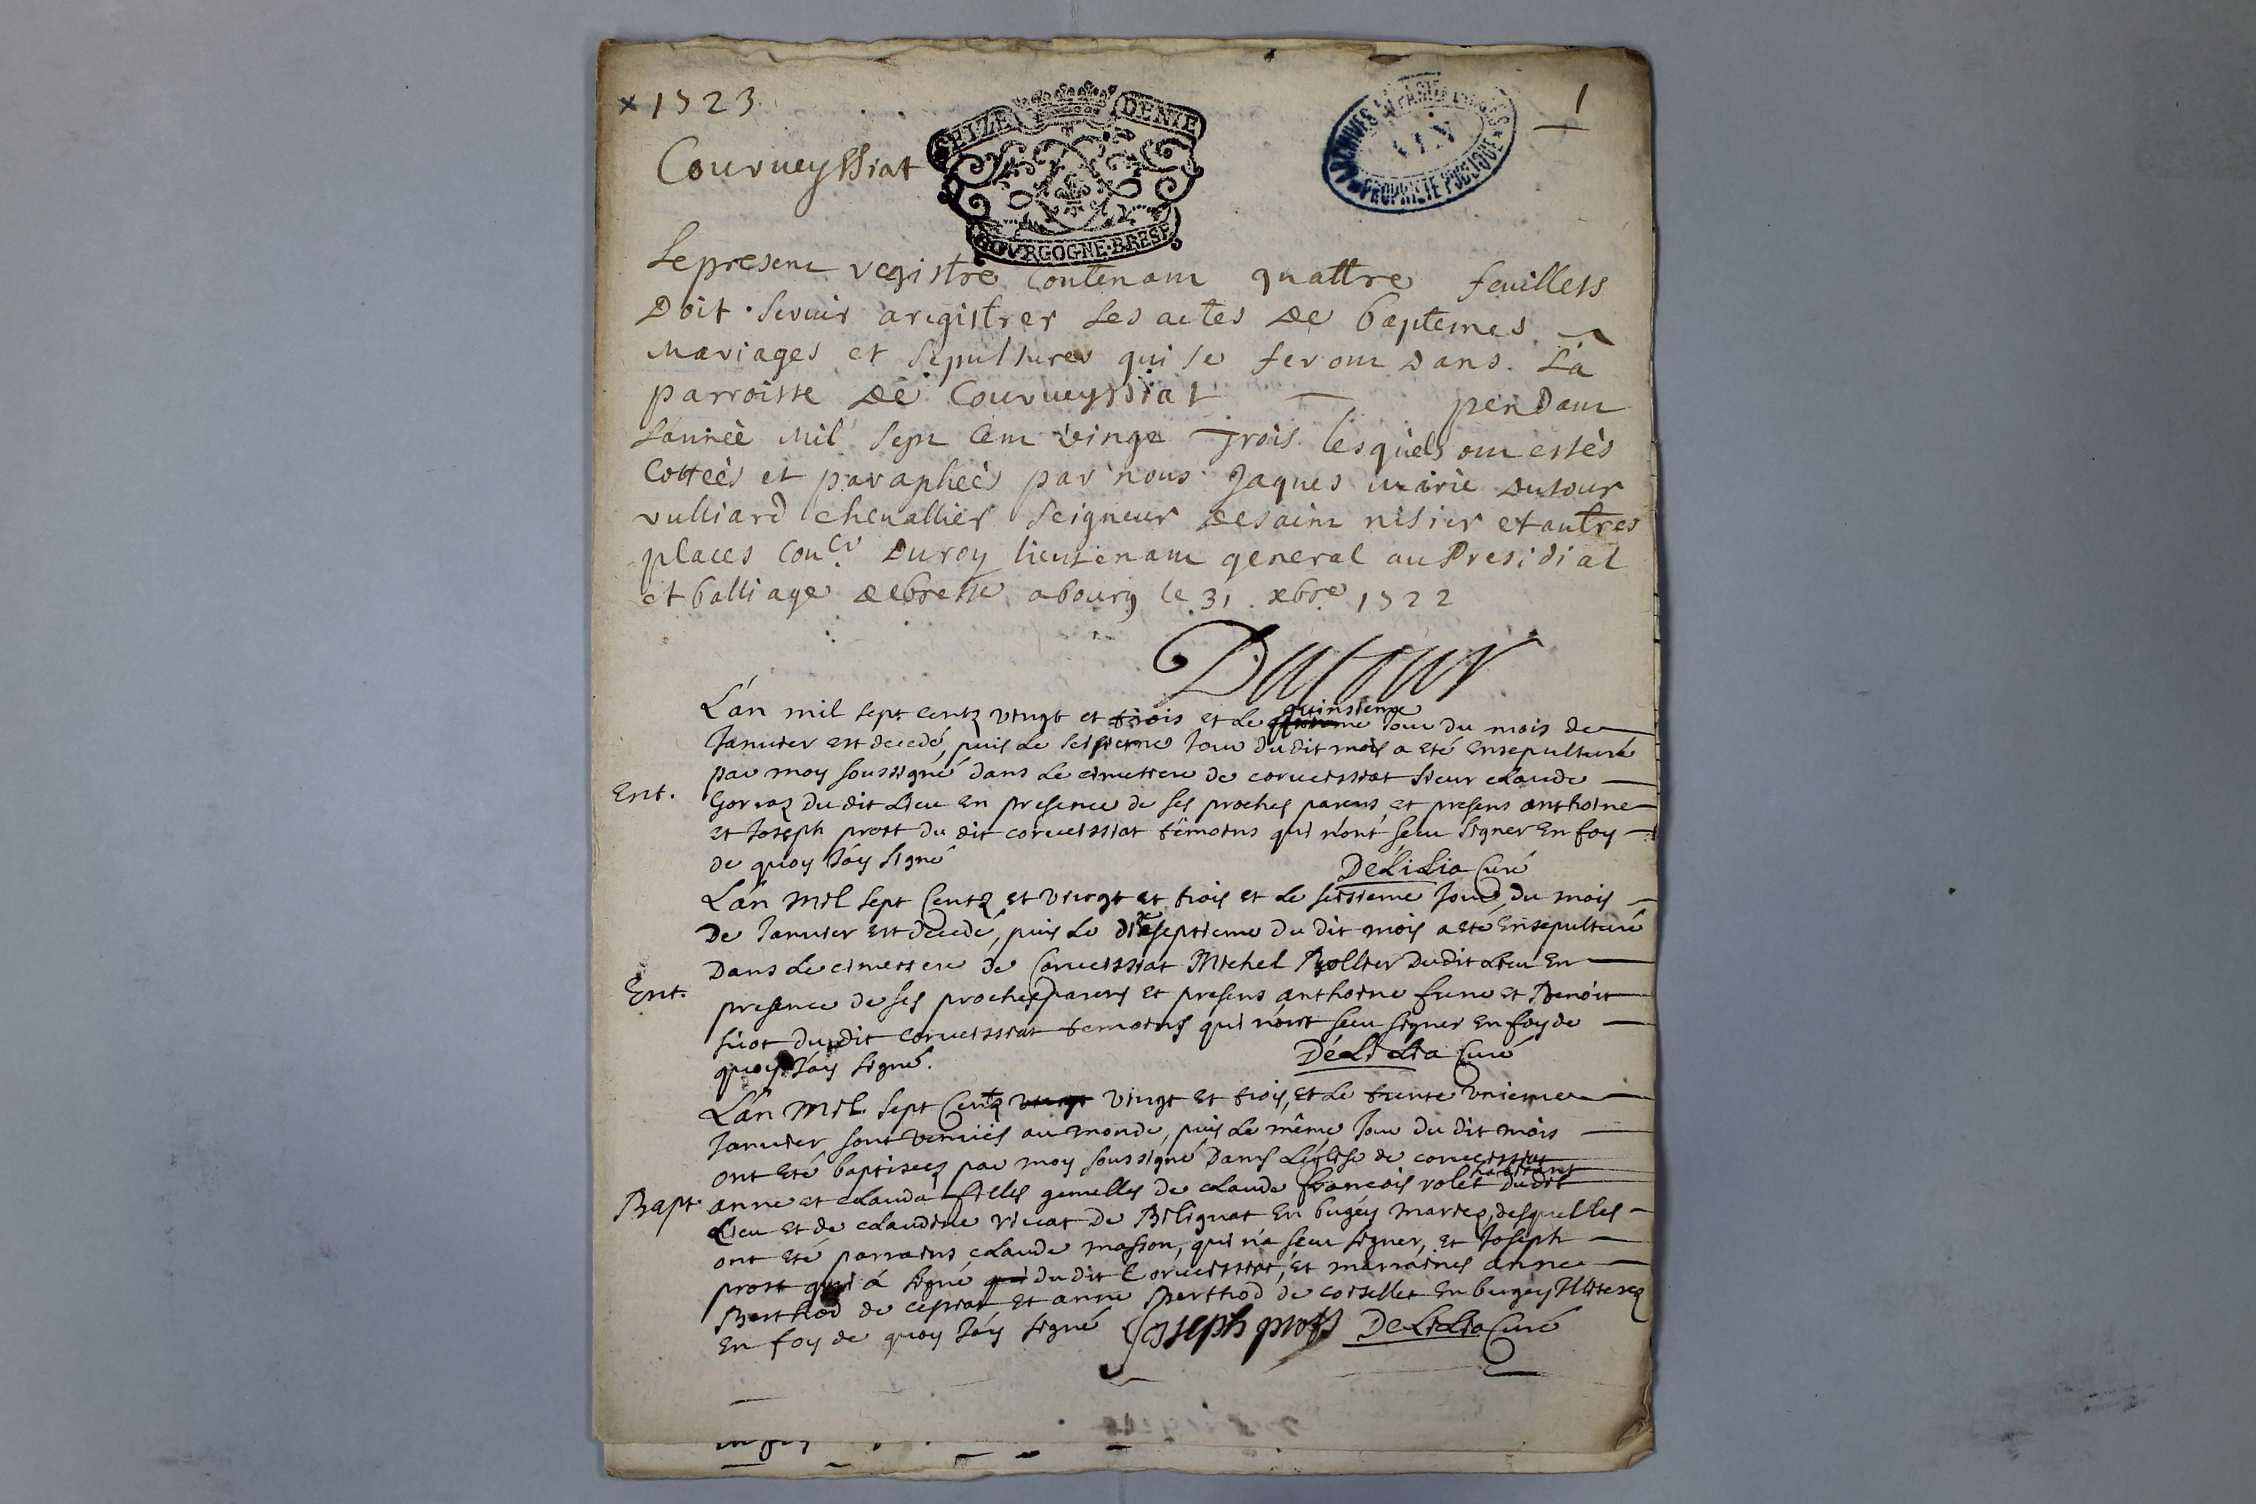 x 1723
1
SEIZE DENIE
BOVRGOGNE·BRESE
ARCHIVES DEPARTEMENTALES
AIN
PROPRIETE PUBLIQUE
Courueyssiat
Le present registre Contenant quattre feuillets
Doit servir aregistrer les actes de baptemes
mariages et sepultures qui se feront dans La
parroisse de Courueyssiat pendant
Lannèè mil sept Cent vingt trois lesquels ont estès
Cottèès et paraphèès par nous Jaques marie Dutour
vulliard chevallier seigneur desaint nisier et autres
places Con.er Duroy lieutenant general au Presidial
et balliage debresse abourg le 31 xbre 1722
Dutour
L'an mil sept centz vingt et trois et Le quinsieme Jour du mois de
Januier est decedé, puis Le seisieme Jour dudit mois a eté ensepulturé
par moy soussigné dans Le cimetiere de corueissiat sieur claude
Ent. Gorraz du dit Lieu en presence de ses proches parens et presens anthoine
et Joseph prost du dit corueissiat témoins qui n'ont seeu signer En foy
de quoy J'ay signé DéLiLia Curé
L'an mil sept Centz et vingt et trois et Le seisieme Jour du mois
De Januier est decedé, puis Le dixseptieme du dit mois a eté Ensepulturé
Dans Le cimetiere de Corueissiat Michel Rollier Dudit Lieu En
Ent. presence de ses proches parens et presens anthoine frene et Benoit
du dit corueissiat temoins qui n'ont seeu signer en foy de
quoy J'ay signé. DéLiLia Curé
L'an mil sept Centz vingt vingt et trois, et Le trente unieme
Januier sont venuës au monde, puis Le même Jour du dit mois
ont eté baptiseez par moy soussigné Dans L'église de corueissiat
habitant
Bapt anne et claudà filles gemelles de claude francois rolet dudit
Lieu et de claudine vicat De Bilignat En bugey mariez, desquelles
ont eté parrains claude masson, qui n'a seeu signer, et Joseph
prost qui á signé qui du dit Corueissiat, et marraines anne
Berthod de cessiat et anne Berthod de coiselet En bugey Illiterez
En foy de quoy J'ay signé Joseph prost DeLiLia Curé